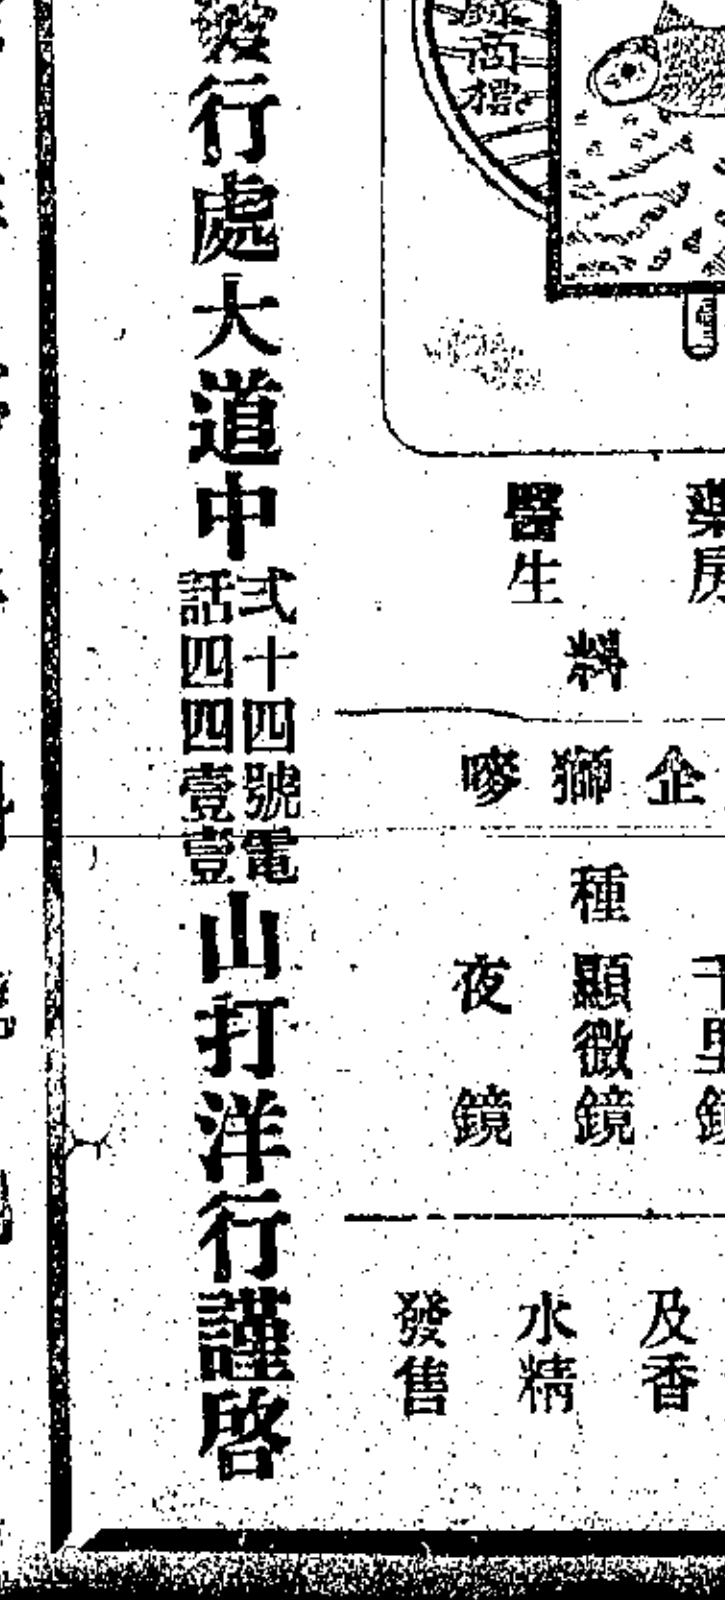 商標
藥房
醫生
料
企獅嘜
種
千里鏡
顯微鏡
夜鏡
及香
水精
發售
發行處大道中
弍十四號電
話四四壹壹
山打洋行謹啓